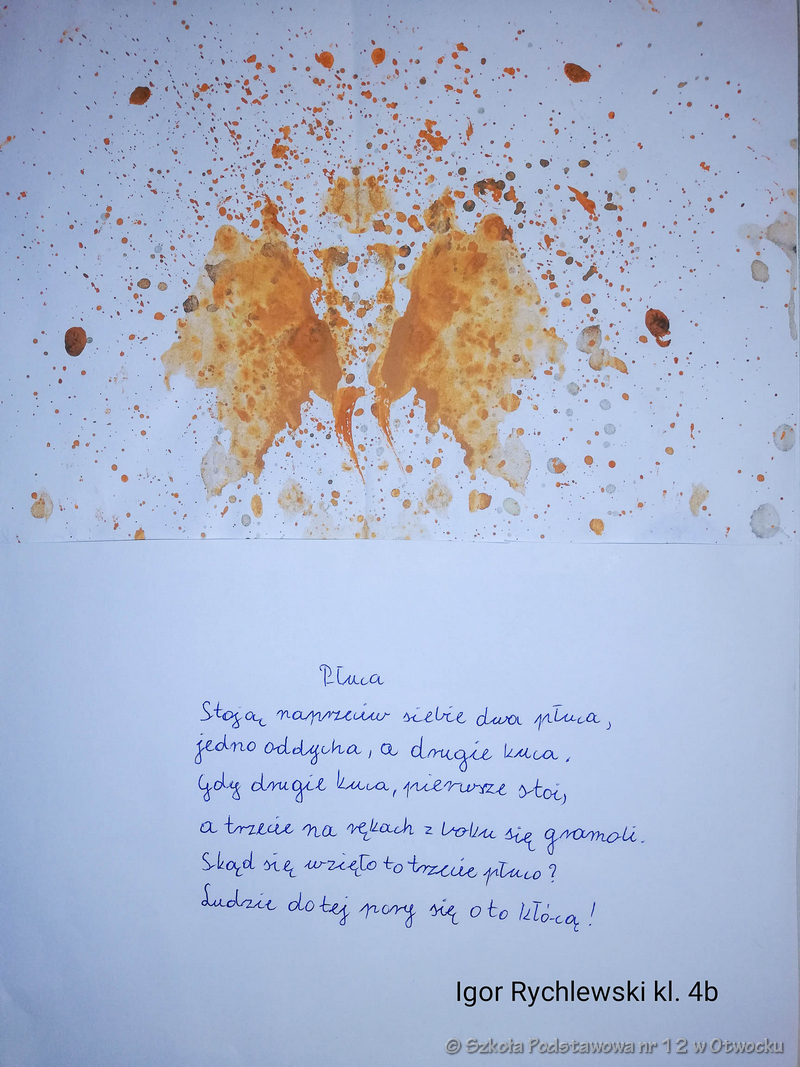 Płuca
Stoją naprzeciw siebie dwa płuca,
jedno oddycha, a drugie kuca.
Gdy drugie kuca, pierwsze stoi,
a trzecie na rękach z boku się gramoli.
Skąd się wzięło to trzecie płuco?
Ludzie do tej pory się o to kłócą!
Igor Rychlewski kl. 4b
© Szkoła Podstawowa nr 12 w Otwocku